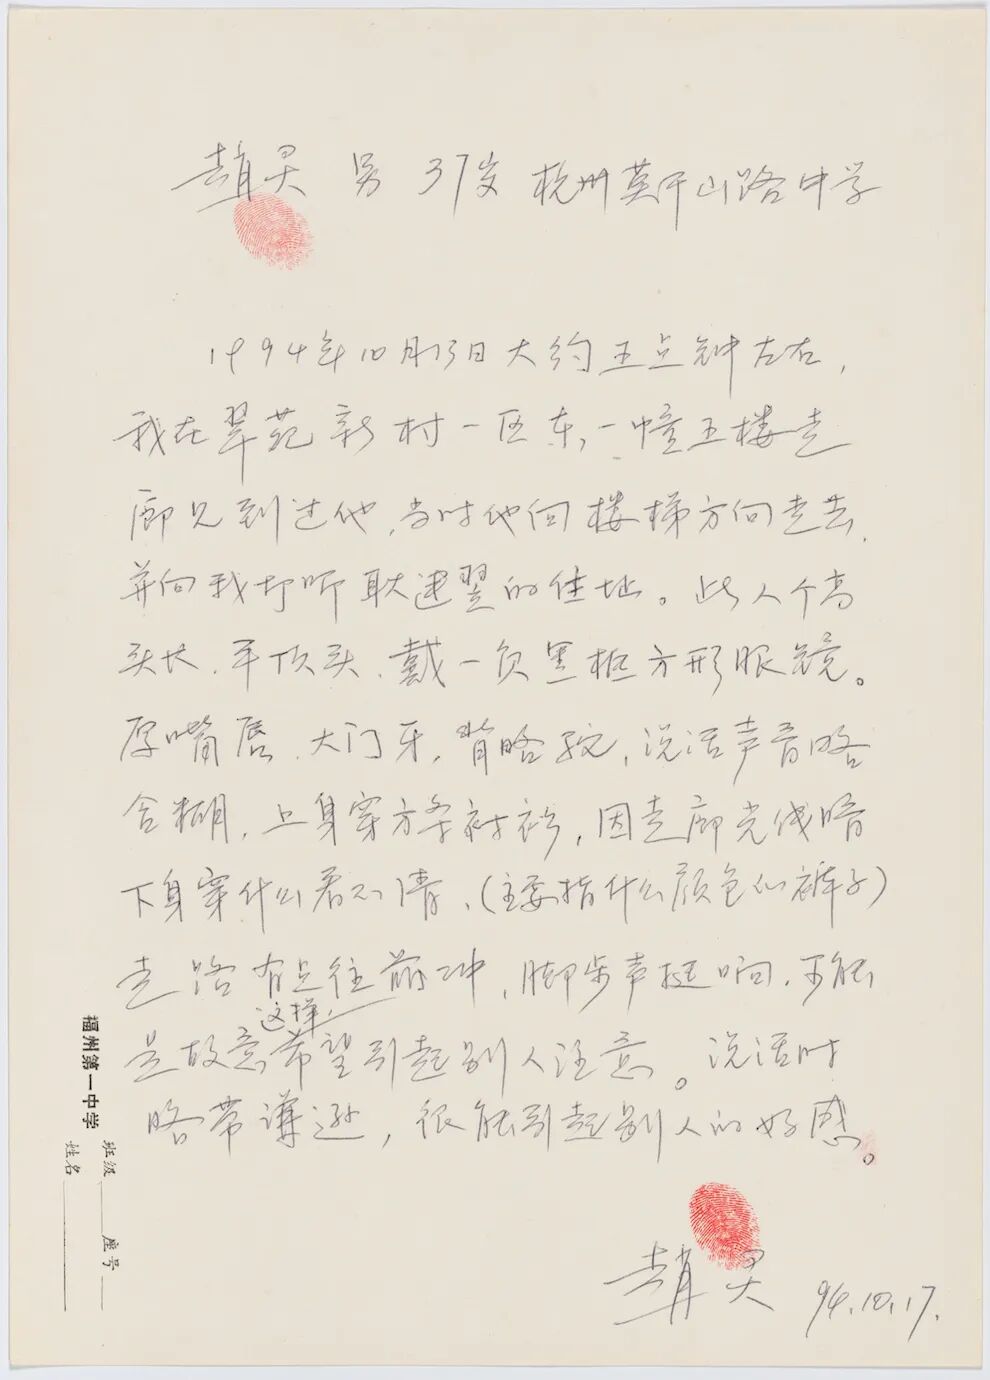 趙灵 男 37岁 杭州莫干山路中学
1994年10月13日大约五点钟左右,
我在翠苑新村一区东,一幢五楼走
廊见到过他,当时他向楼梯方向走去,
并向我打听耿建翌的住址。此人个高
头长、平顶头、戴一负黑框方形眼镜。
厚嘴唇、大门牙,背略驼,说话声音略
含糊,上身穿方条衬衫,因走廊光线暗
下身穿什么看不清、(主要指什么颜色的裤子)
走路有点往前冲,脚步声挺响,可能
这样,
是故意希望引起别人注意。说话时
略带谦逊,很能引起别人的好感。
趙灵 94.10.17.
福州第一中学
班级 座号
姓名